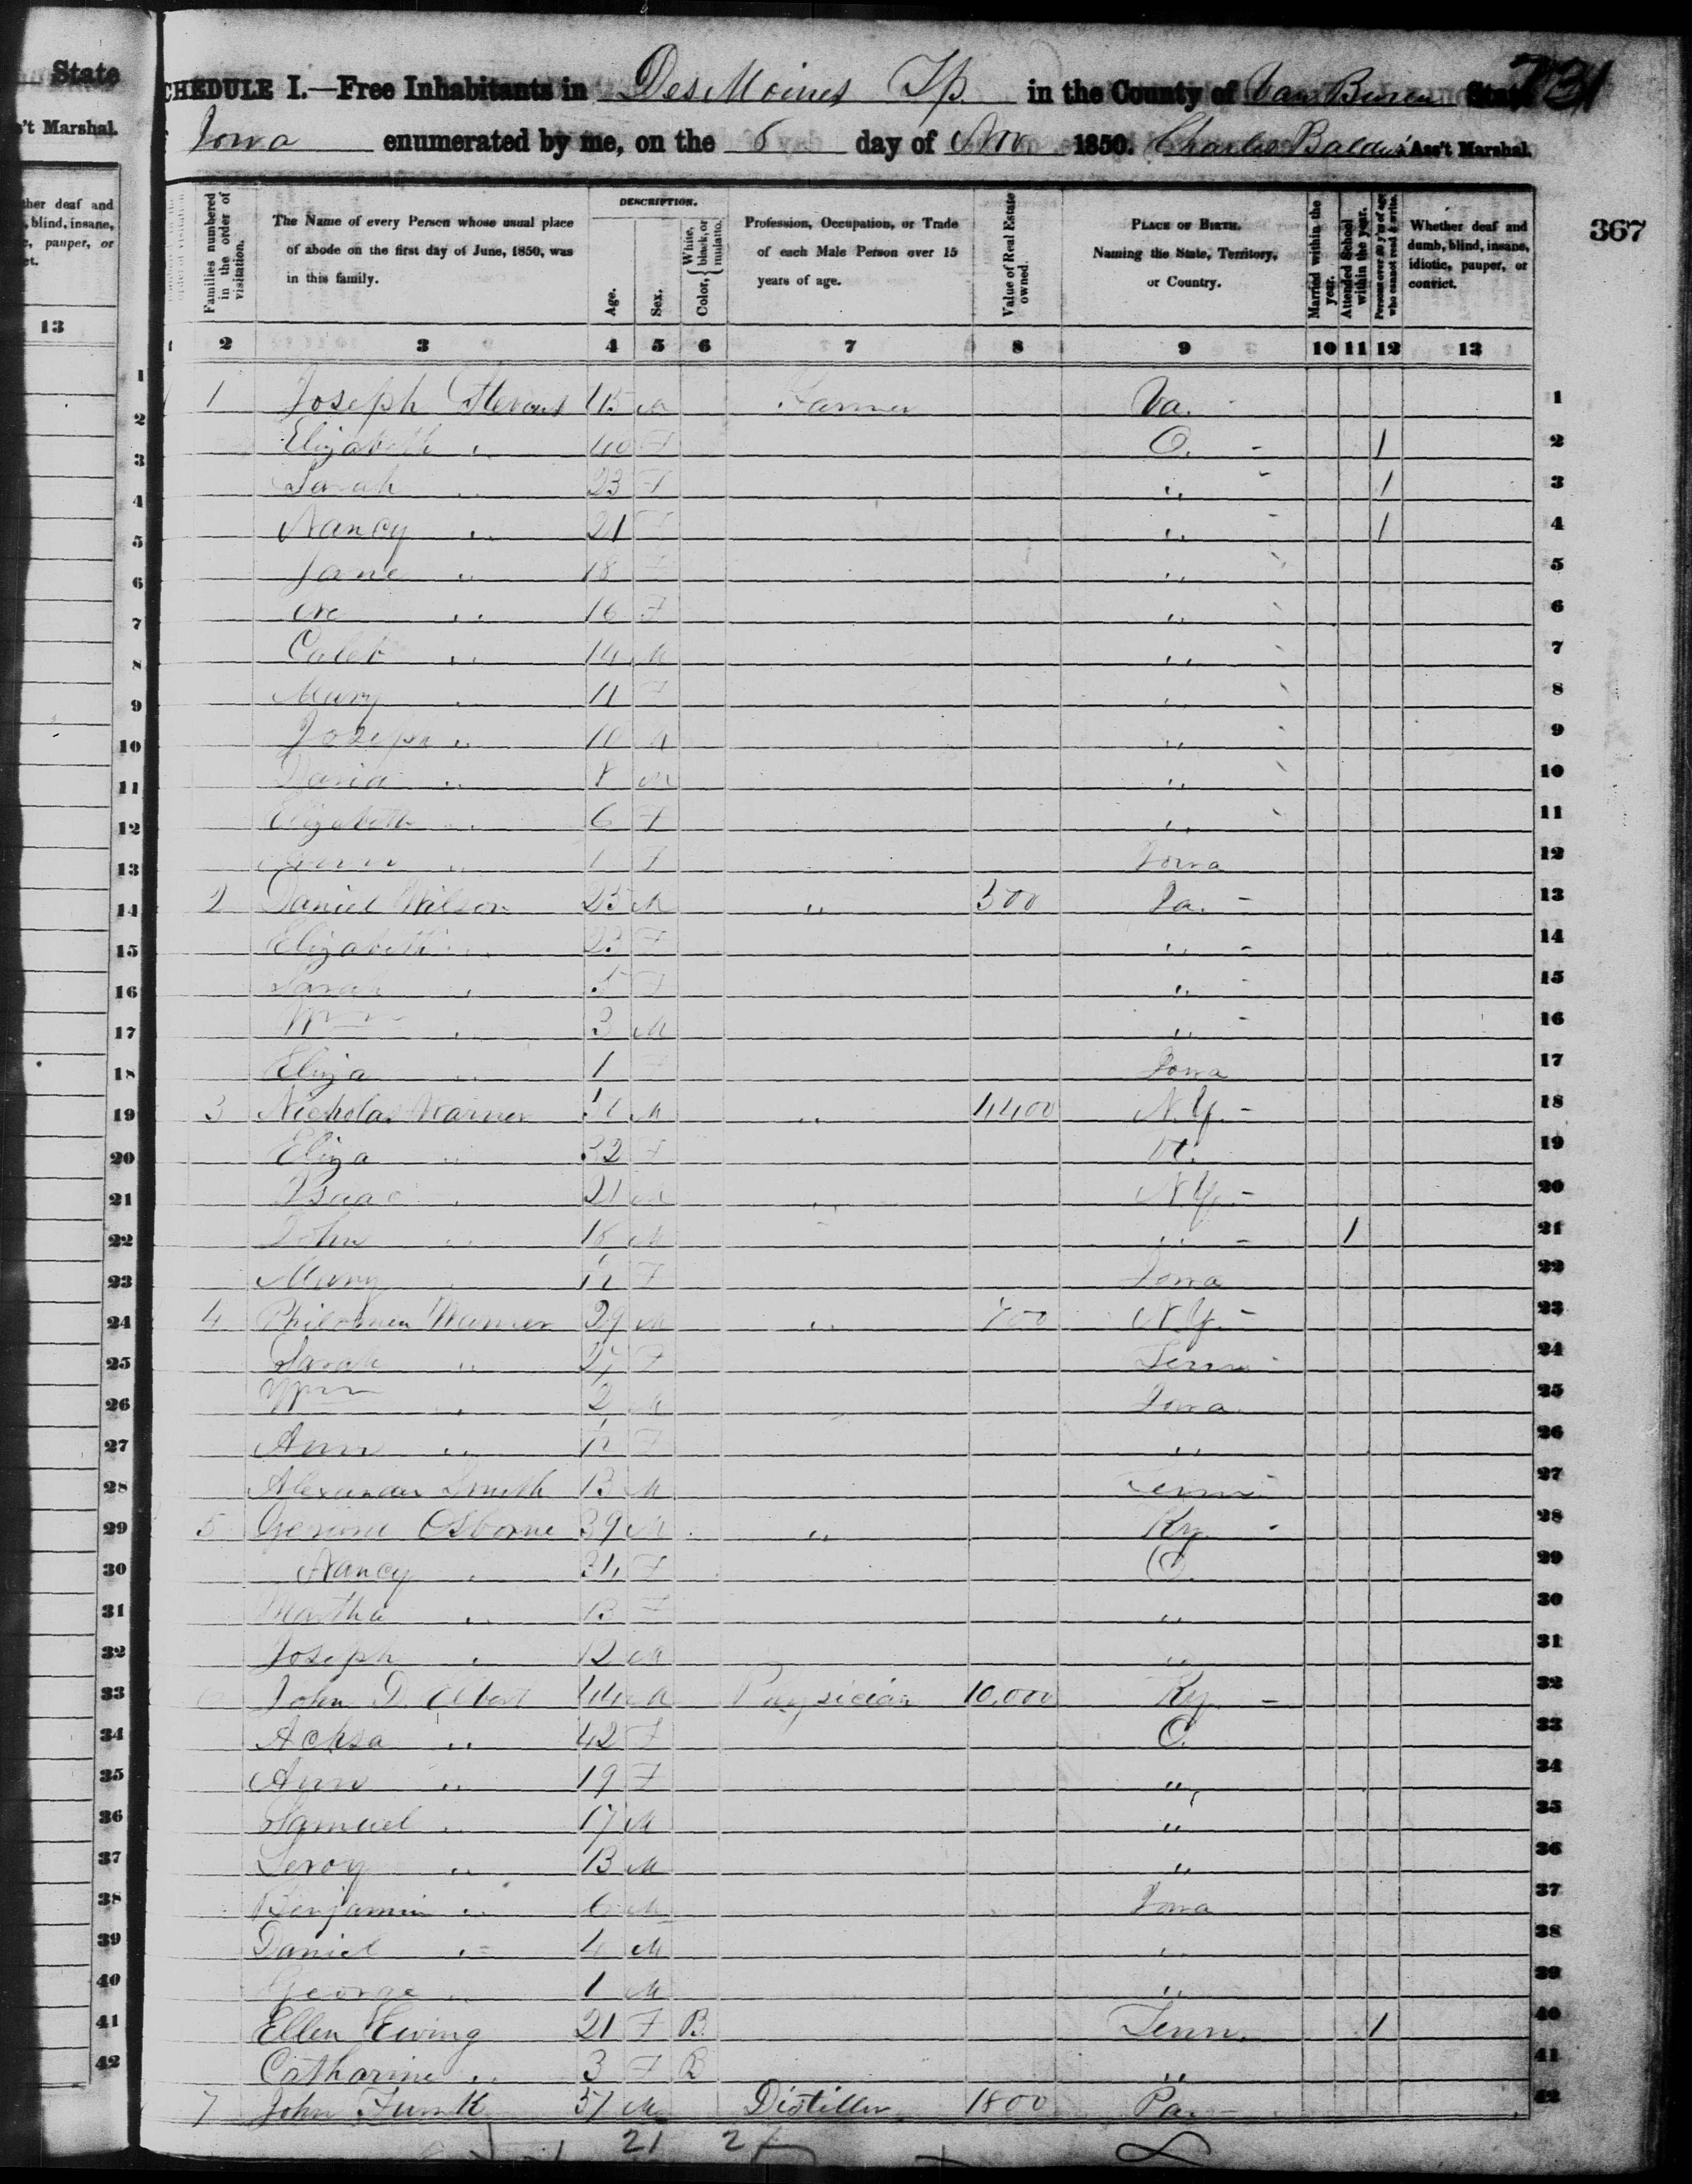 State
's't Marshal.
ther deaf and
, blind, insane,
e, pauper, or
ct.
13
731
CHEDULE I.—Free Inhabitants in Des Moines Tp. in the County of Van Buren State
Iowa enumerated by me, on the 6 day of Nov 1850. Charles Baldwin Ass't Marshal.
367
Families numbered in the order of visitation.
The Name of every Person whose usual place of abode on the first day of June, 1850, was in this family.
DESCRIPTION.
Age.
Sex.
Color, { White, black, or mulatto.
Profession, Occupation, or Trade of each Male Person over 15 years of age.
Value of Real Estate owned.
PLACE OF BIRTH. Naming the State, Territory, or Country.
Married within the year.
Attended School within the year.
Persons over 20 y'rs of age who cannot read & write.
Whether deaf and dumb, blind, insane, idiotic, pauper, or convict.
2 3 4 5 6 7 8 9 10 11 12 13
1 Joseph Stevens 45 M Farmer Va. 1
Elizabeth " 40 F O. 1 2
Sarah " 23 F " 1 3
Nancy " 21 F " 1 4
Jane " 18 F " 5
" 16 F " 6
Caleb " 14 M " 7
Mary " 11 F " 8
Joseph " 10 M " 9
David " 8 M " 10
Elizabeth " 6 F " 11
" 1 F Iowa 12
2 Daniel Wilson 25 M " 300 Pa. 13
Elizabeth " 23 F " 14
Sarah " 5 F " 15
Wm " 3 M " 16
Eliza " 1 F Iowa 17
3 Nicholas Warner M " 4400 N.Y. 18
Eliza " 32 F Vt. 19
Isaac " 21 M " N.Y. 20
John " M " 1 21
Mary " F Iowa 22
4 Philomen Warner 29 M " N.Y. 23
Sarah " 27 F Tenn 24
Wm " 2 M Iowa 25
Ann " F " 26
Alexander Smith 13 M Tenn 27
5 Osborne 39 M " Ky. 28
Nancy " F O. 29
Martha " 13 F " 30
Joseph " 12 M " 31
6 John D. Elbert 44 M Physician 10,000 Ky. 32
Achsa " 42 F O. 33
Ann " 19 F " 34
Samuel " 17 M " 35
Leroy " 13 M " 36
Benjamin " 6 M Iowa 37
Daniel " 4 M " 38
George " 1 M " 39
Ellen Ewing 21 F B Tenn. 1 40
Catharine " 3 F B " 41
7 John Funk 51 M Distiller 1800 Pa. 42
21 21